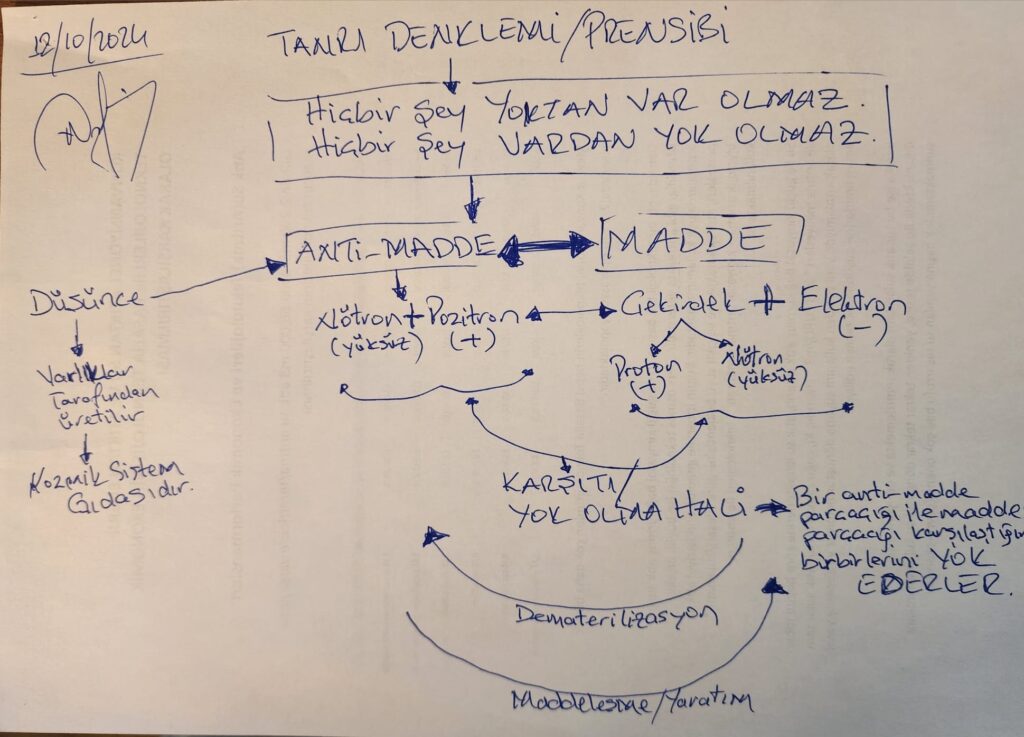 12/10/2024
TANRI DENKLEMİ/PRENSİBİ
Hiçbir Şey YOKTAN VAR OLMAZ.
Hiçbir Şey VARDAN YOK OLMAZ.
ANTİ-MADDE
MADDE
Düşünce
Varlıklar
Tarafından
üretilir
Kozmik Sistem
Gıdasıdır.
Nötron + Pozitron
(yüksüz) (+)
Çekirdek + Elektron
(-)
Proton
(+)
Nötron
(yüksüz)
KARŞITI
YOK OLMA HALİ
Bir anti-madde
parçacığı ile madde
parçacığı karşılaştığın
birbirlerini YOK
EDERLER.
Dematerilizasyon
Maddeleşme/Yaratım